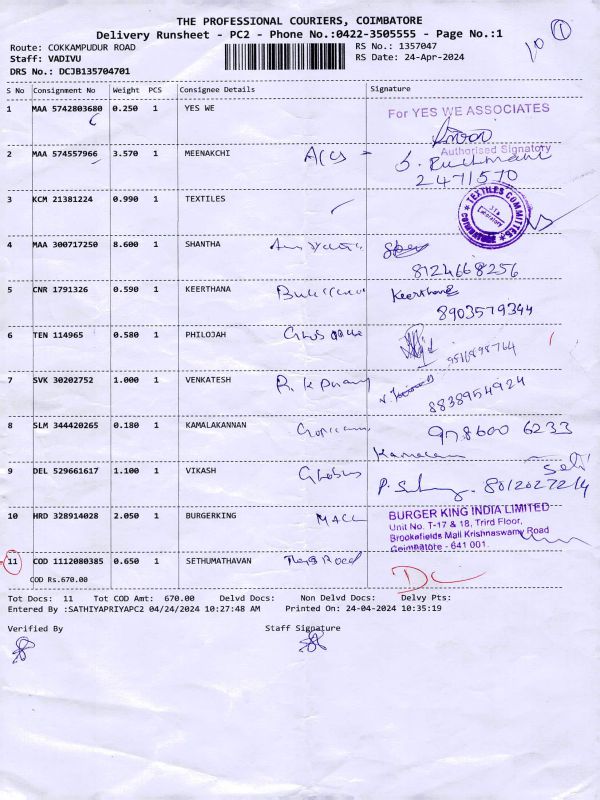 THE PROFESSIONAL COURIERS, COIMBATORE
Delivery Runsheet - PC2 - Phone No.:0422-3505555 - Page No.:1
Route: COKKAMPUDUR ROAD
RS No.: 1357047
10 1
Staff: VADIVU
RS Date: 24-Apr-2024
DRS No.: DCJB135704701
S No Consignment No Weight PCS Consignee Details Signature
1 MAA 5742803680 0.250 1 YES WE
For YES WE ASSOCIATES
Authorised Signatory
2 MAA 574557966 3.570 1 MEENAKCHI
2471570
3 KCM 21381224 0.990 1 TEXTILES
TEXTILES COMMITTEE
Laboratory
4 MAA 300717250 8.600 1 SHANTHA
8124668256
5 CNR 1791326 0.590 1 KEERTHANA Keerthana
8903579344
6 TEN 114965 0.580 1 PHILOJAH
7 SVK 30202752 1.000 1 VENKATESH
8838954924
8 SLM 344420265 0.180 1 KAMALAKANNAN
978600 6233
9 DEL 529661617 1.100 1 VIKASH
10 HRD 328914028 2.050 1 BURGERKING
BURGER KING INDIA LIMITED
Unit No. T-17 & 18, Trird Floor,
Brookefields Mall Krishnaswamy Road
Coimbatore - 641 001.
11 COD 1112080385 0.650 1 SETHUMATHAVAN Road
COD Rs.670.00
Tot Docs: 11 Tot COD Amt: 670.00 Delvd Docs: Non Delvd Docs: Delvy Pts:
Entered By :SATHIYAPRIYAPC2 04/24/2024 10:27:48 AM Printed On: 24-04-2024 10:35:19
Verified By Staff Signature